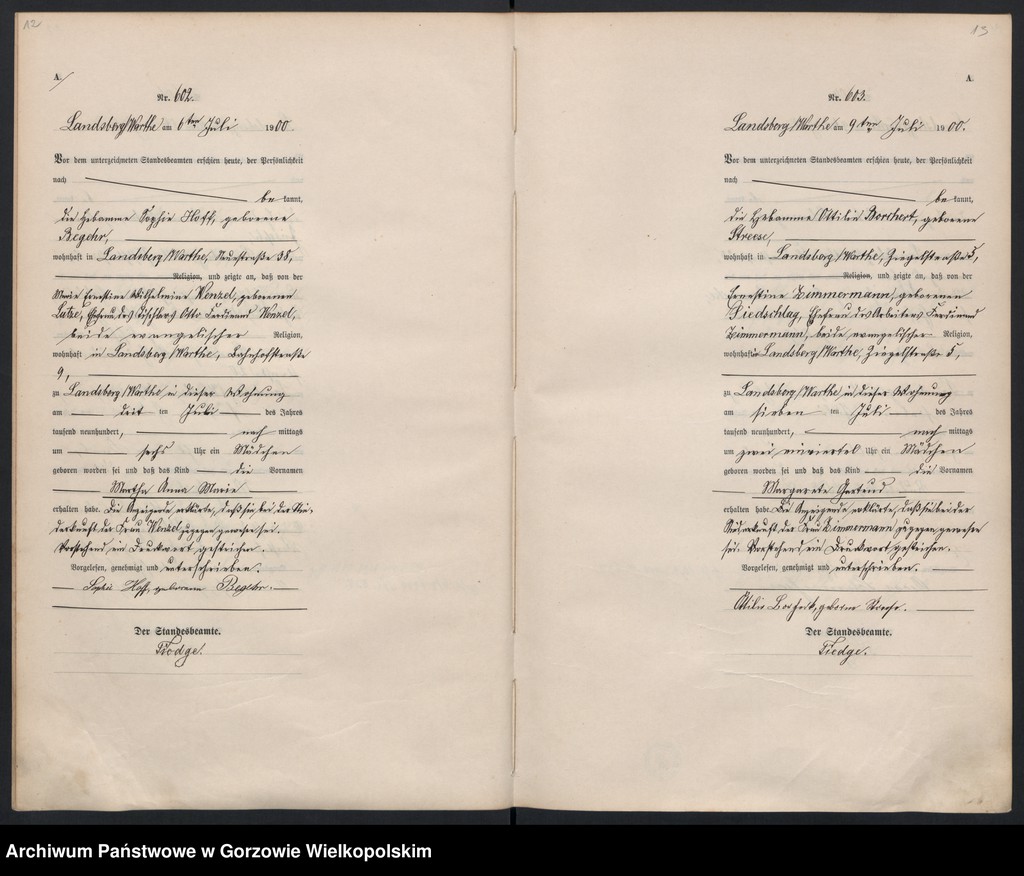 12
A.
Nr. 602.
Landsberg/Warthe am 6ten Juli 1900
Vor dem unterzeichneten Standesbeamten erschien heute, der Persönlichkeit
nach
be kannt,
die Hebamme Sophie Hoff, geborene
Regehr,
wohnhaft in Landsberg/Warthe, Neuestraße 38,
Religion, und zeigte an, daß von der
Marie Ernestine Wilhelmine Wenzel, geborenen
Lutze, Ehefrau des Tischlers Otto Ferdinand Wenzel,
beide evangelischer Religion,
wohnhaft in Landsberg/Warthe, Bahnhofstraße
9,
zu Landsberg/Warthe in dieser Wohnung
am drei ten Juli des Jahres
tausend neunhundert, nach mittags
um sechs Uhr ein Mädchen
geboren worden sei und daß das Kind die Vornamen
Martha Anna Marie
erhalten habe. Die Anzeigende erklärte, daß sie bei der Nie-
derkunft der Frau Wenzel zugegen gewesen sei.
Vorstehend ein Druckwort gestrichen.
Vorgelesen, genehmigt und unterschrieben.
Sophie Hoff, geborene Regehr.
Der Standesbeamte.
Tiedge.
13
A.
Nr. 603.
Landsberg/Warthe am 9ten Juli 1900.
Vor dem unterzeichneten Standesbeamten erschien heute, der Persönlichkeit
nach
be kannt,
die Hebamme Ottilie Borchert, geborene
Streese,
wohnhaft in Landsberg/Warthe, Ziegelstraße 5,
Religion, und zeigte an, daß von der
Ernestine Zimmermann, geborenen
Diedschlag, Ehefrau des Arbeiters Ferdinand
Zimmermann, beide evangelischer Religion,
wohnhaft in Landsberg/Warthe, Ziegelstraße 5,
zu Landsberg/Warthe, in dieser Wohnung
am sieben ten Juli des Jahres
tausend neunhundert, nach mittags
um zwei einviertel Uhr ein Mädchen
geboren worden sei und daß das Kind die Vornamen
Margarete Gertrud
erhalten habe. Die Anzeigende erklärte, daß sie bei der
Niederkunft der Frau Zimmermann zugegen gewesen
sei. Vorstehend ein Druckwort gestrichen.
Vorgelesen, genehmigt und unterschrieben.
Ottilie Borchert, geborne Streese.
Der Standesbeamte.
Tiedge.
Archiwum Państwowe w Gorzowie Wielkopolskim